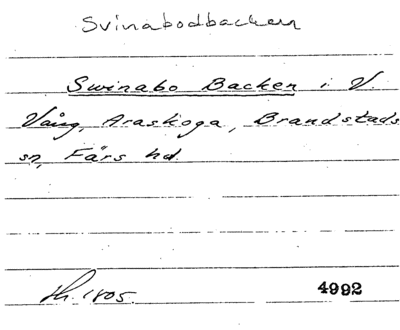 Svinabodbacken
Swinabo Backen i V.
Vång, Araskoga, Brandstads
sn, Färs hd.
1805. 4992